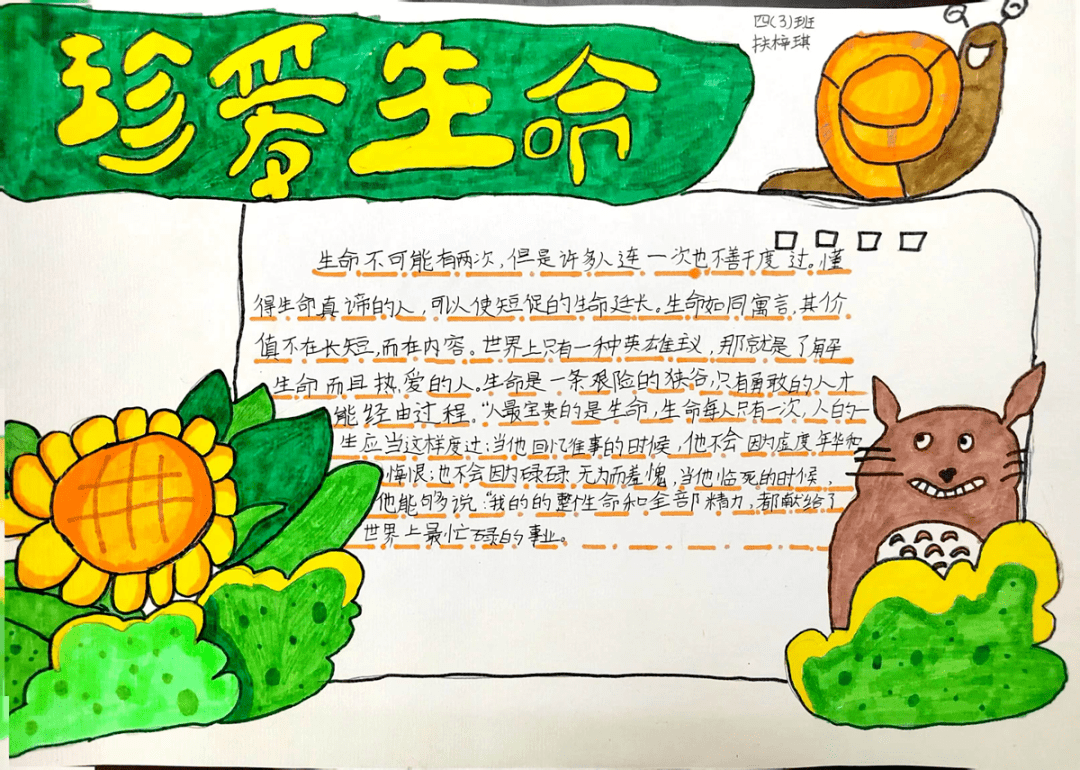 珍爱生命
四(3)班
扶梓琪
生命不可能有两次，但是许多人连一次也不善于度过。懂
得生命真谛的人，可以使短促的生命延长。生命如同寓言，其价
值不在长短，而在内容。世界上只有一种英雄主义，那就是了解
生命而且热爱的人。生命是一条艰险的狭谷，只有勇敢的人才
能经由过程。“人最宝贵的是生命，生命每人只有一次，人的一
生应当这样度过：当他回忆往事的时候，他不会因为虚度年华和
悔恨；也不会因为碌碌无为而羞愧，当他临死的时候，
他能够说：“我的的整生命和全部精力，都献给了
世界上最忙碌的事业。